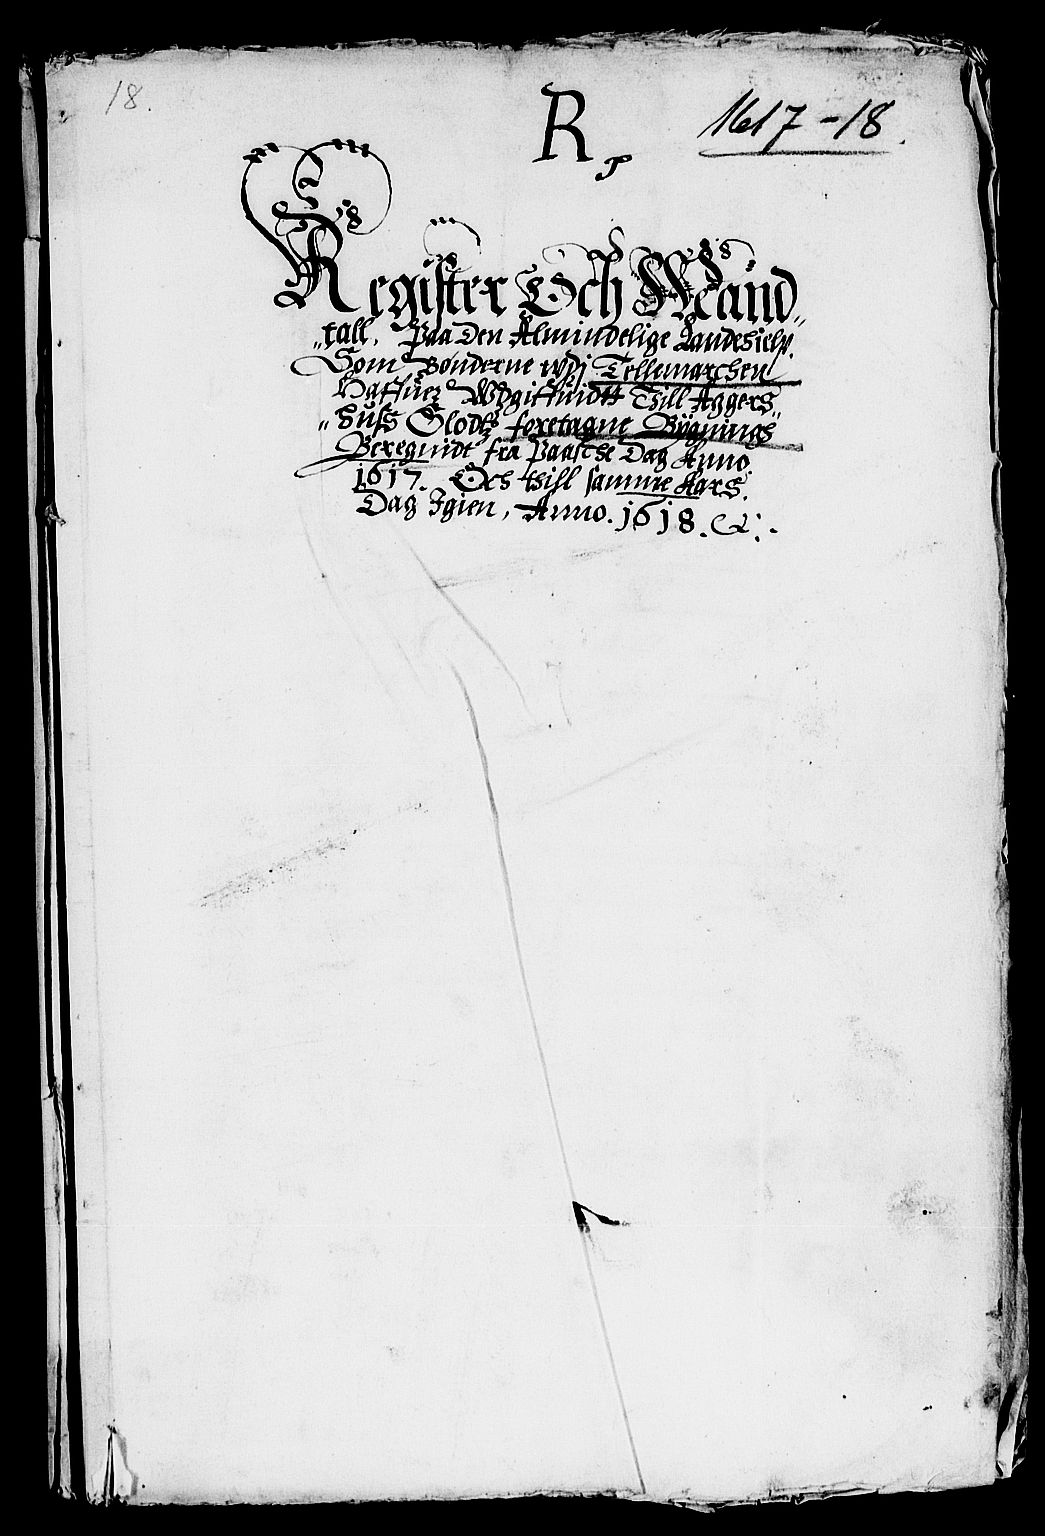 18.
R
1617-18.
Register Och Mand„
„tall, Paa Den Almindelige Landehielp.
Som Bønderne wdj Tellemarchen
Haffuer Wdgiffuidtt Till Aggers„
„huss Slodtz foretagne Bÿgnings
Beregnidt fra Paasche Dag Anno
1617. Och thill samme Aars.
Dag Igien, Anno. 1618. &:.